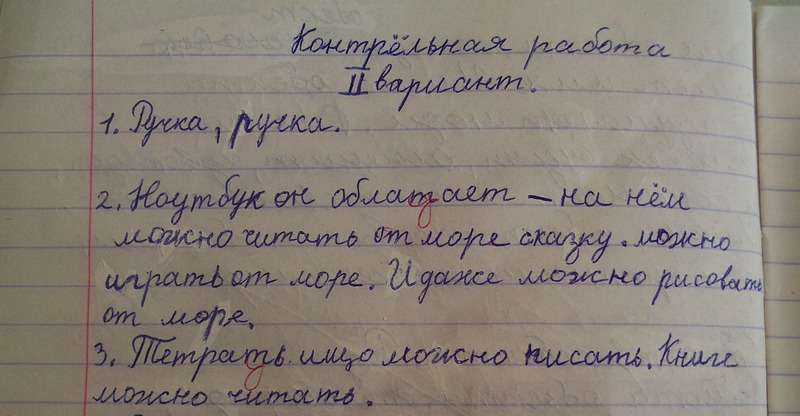 Контрёльная работа
II вариант.
1. Ручка, ручка.
2. Ноутбук он облатает – на нём
можно читать от море сказку. можно
играть от море. И даже можно рисовать
от море.
3. Тетрать ищо можно писать. Книге
можно читать.